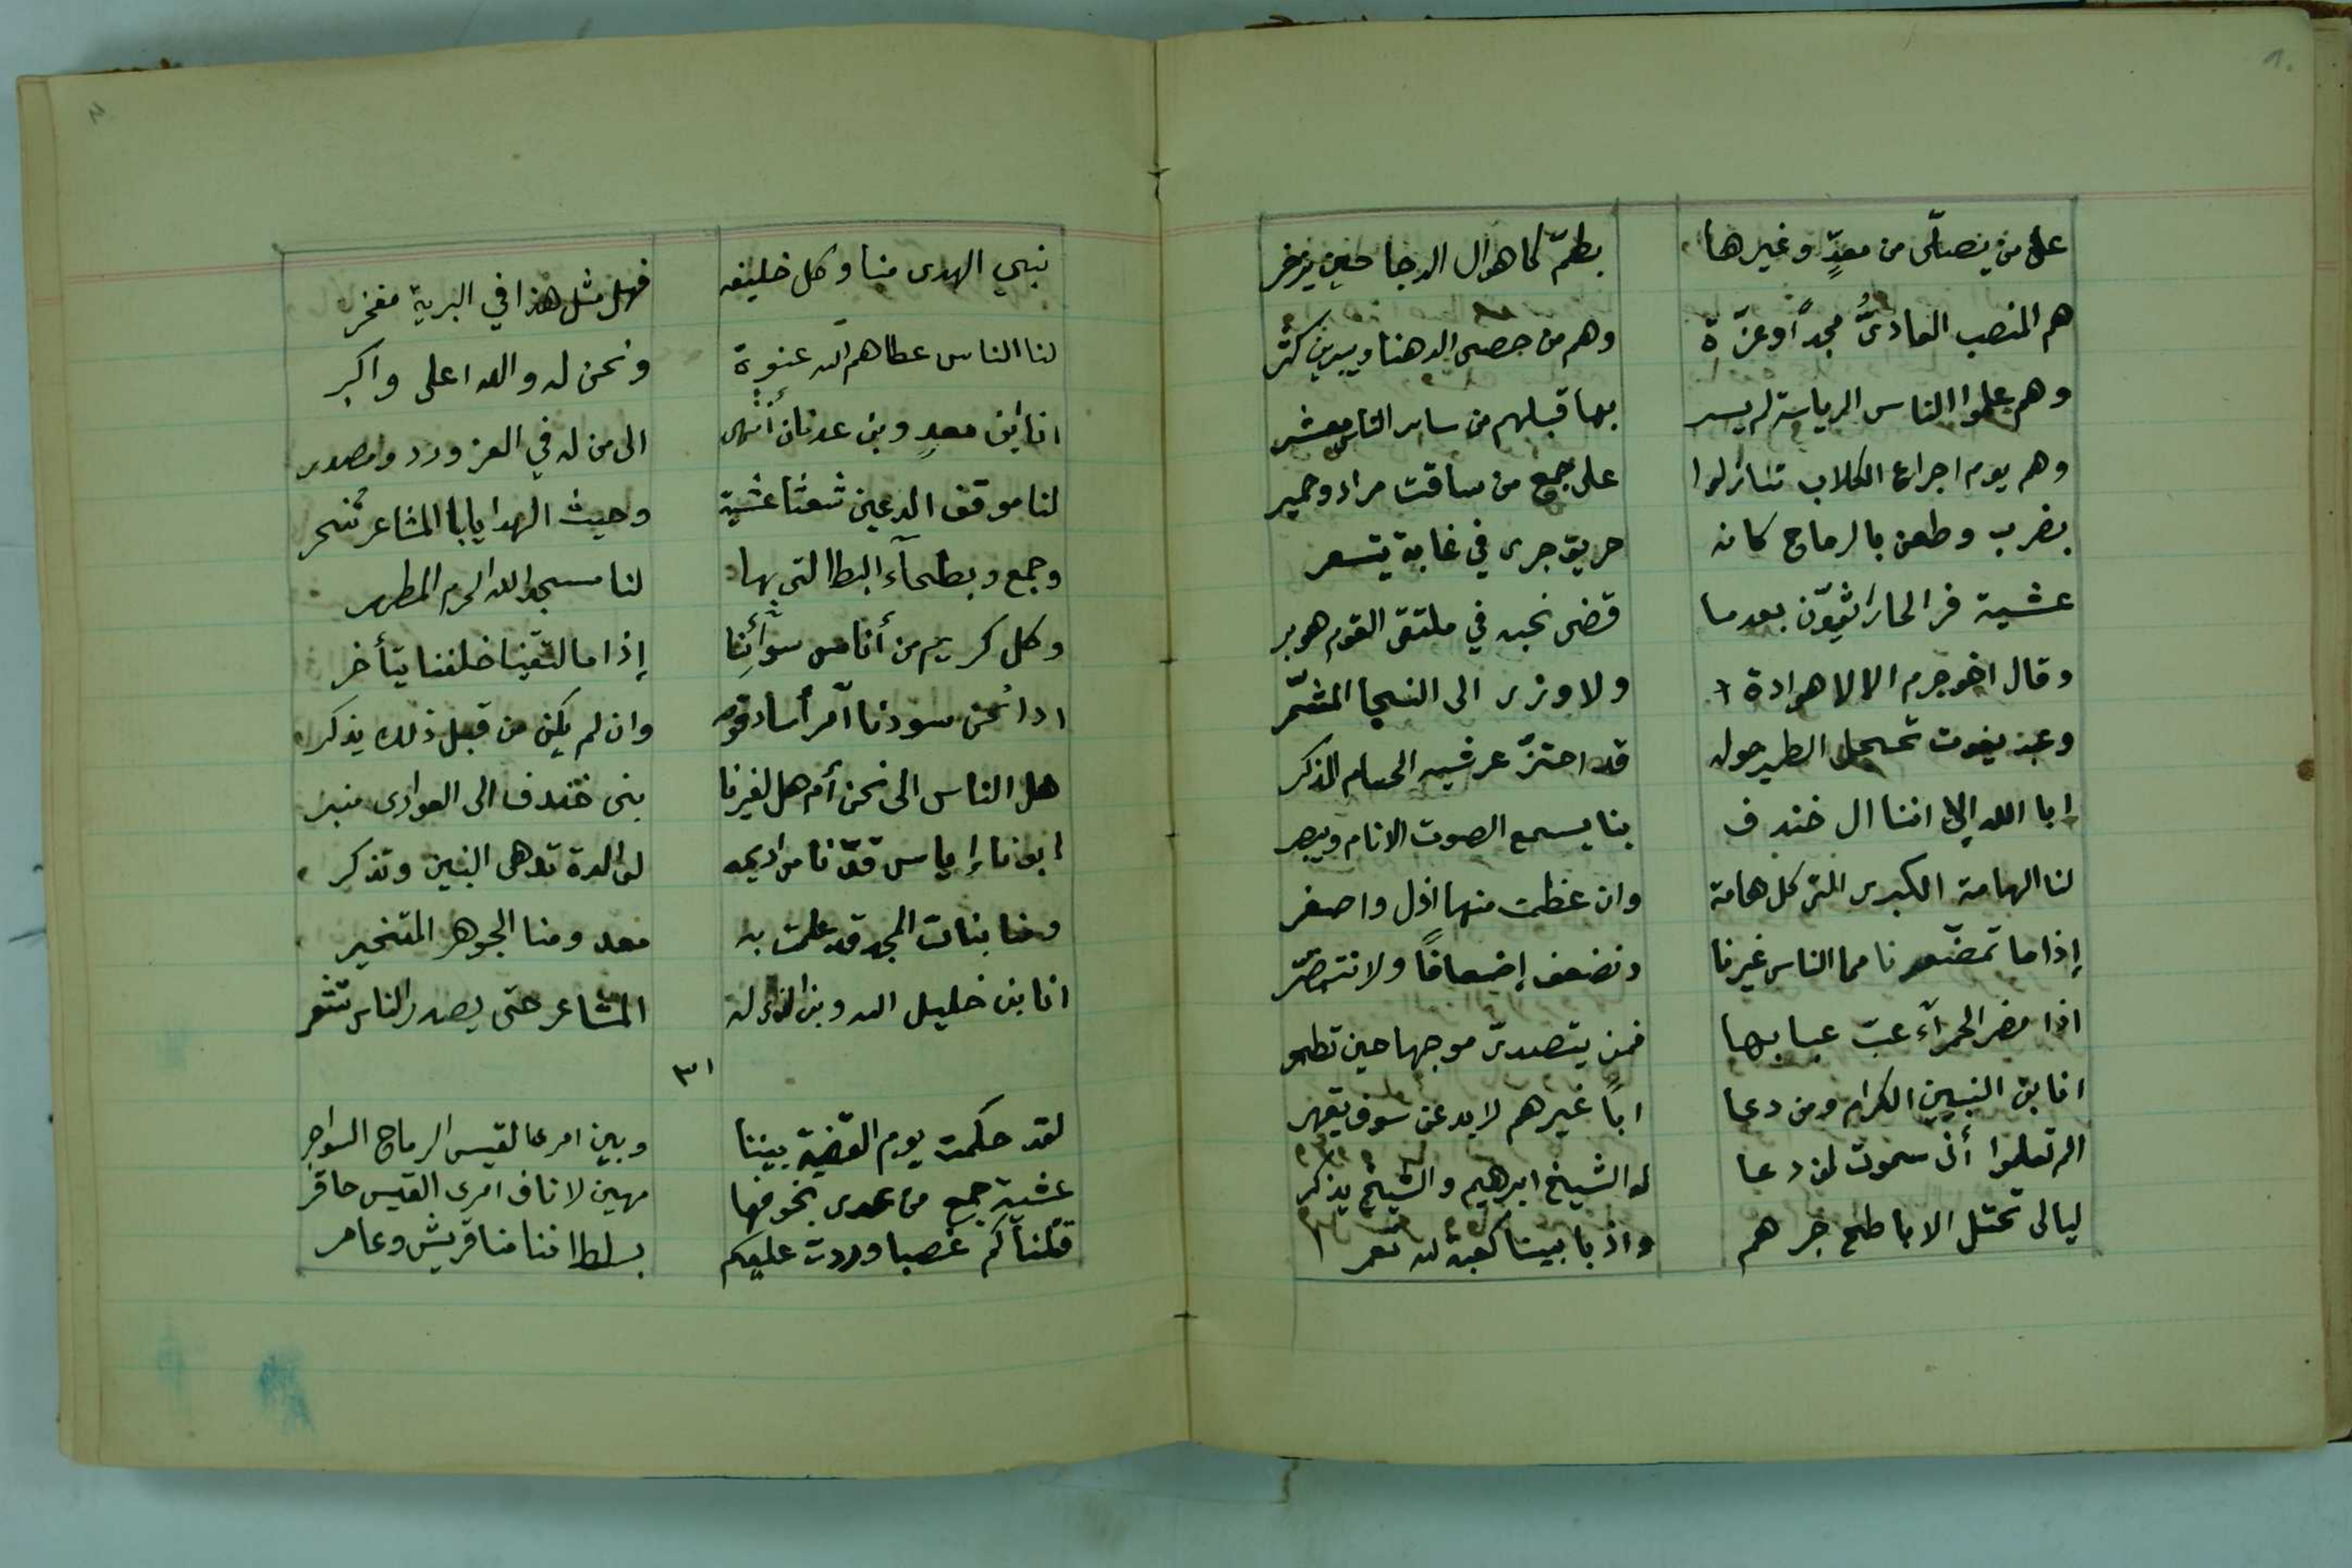 ١٠
على من يصلّى من معدٍّ وغيرها بطمّ كاهوال الدجا حين يزخر
هم المنصب العادىُّ مجداً وعزّة وهم من حصى الدهنا ويبرين كثر
وهم علموا الناس الرياسة لم يسر بها قبلهم من ساير الناس معشر
وهم يوم اجراع الكلاب تنازلوا على جمع من ساقت مراد وحمير
بضرب وطعن بالرماح كانه حريق جرى في غابة يتسعر
عشية فر الحارثيّون بعدما قضى نحبه في ملتقى القوم هوبر
وقال اخو جرم الا لا هوادة ولا وزر الى النجا المشمّر
وعبد يغوث تحجل الطير حوله قد احتزّ عرشيه الحسام المذكر
ابا الله الا اننا ال خندف بنا يسمع الصوت الانام ويبصر
لنا الهامة الكبرى التى كل هامة وان عظمت منها اذل واصغر
إذا ما تمضّرنا فما الناس غيرنا ونضعف إضعافاً ولا نتمضّر
اذا مضر الحمرآء عبّ عبابها فمن يتصدى موجها حين تطحر
انا بن النبيين الكرام ومن دعا اباً غيرهم لا بد عن سوف يقهر
الم تعلموا أنى سموت لمن دعا له الشيخ ابرهيم والشيخ يذكر
ليالى تحتل الاباطح جرهم واذ بابينا كعبة لله تعمر
نبي الهدى منا وكل خليفه فهل مثل هذا في البرية مفخر
لنا الناس عطاهم الله عنوة ونحن له والله اعلى واكبر
انا ابن معدٍ وبن عدنان أنتهى الى من له في العز ورد ومصدر
لنا موقف الدعين شعثا عشية وحيث الهدايا با المشاعر تنحر
وجمع وبطحآء البطا التى بها لنا مسجد الله الحرم المطهر
وكل كريم من أناس سوآئنا إذا ما لتقينا خلفنا يتأخر
اذا نحن سودنا آمرأ ساد قومه وان لم يكن من قبل ذلك يذكر
هل الناس الى نحن أم هل لغيرنا بنى خندف الى العوارى منبر
ابونا إياس قدّنا من اديمه لوالدة تدهى البنين وتذكر
ومنا بنات المجد قد علمت به معد ومنا الجوهر المتخير
انا بن خليل الله وبن الذى له المشاعر حتى يصدر الناس تشعر
٣١
لقد حكمت يوم القضية بيننا وبين امرءالقيس الرماح السواجر
عشية جمع من عدى بخوفها مهين لاناف امرى القيس حاقر
قتلنآكم غصبا وردت عليكم بسلطاننا منا قريش وعامر